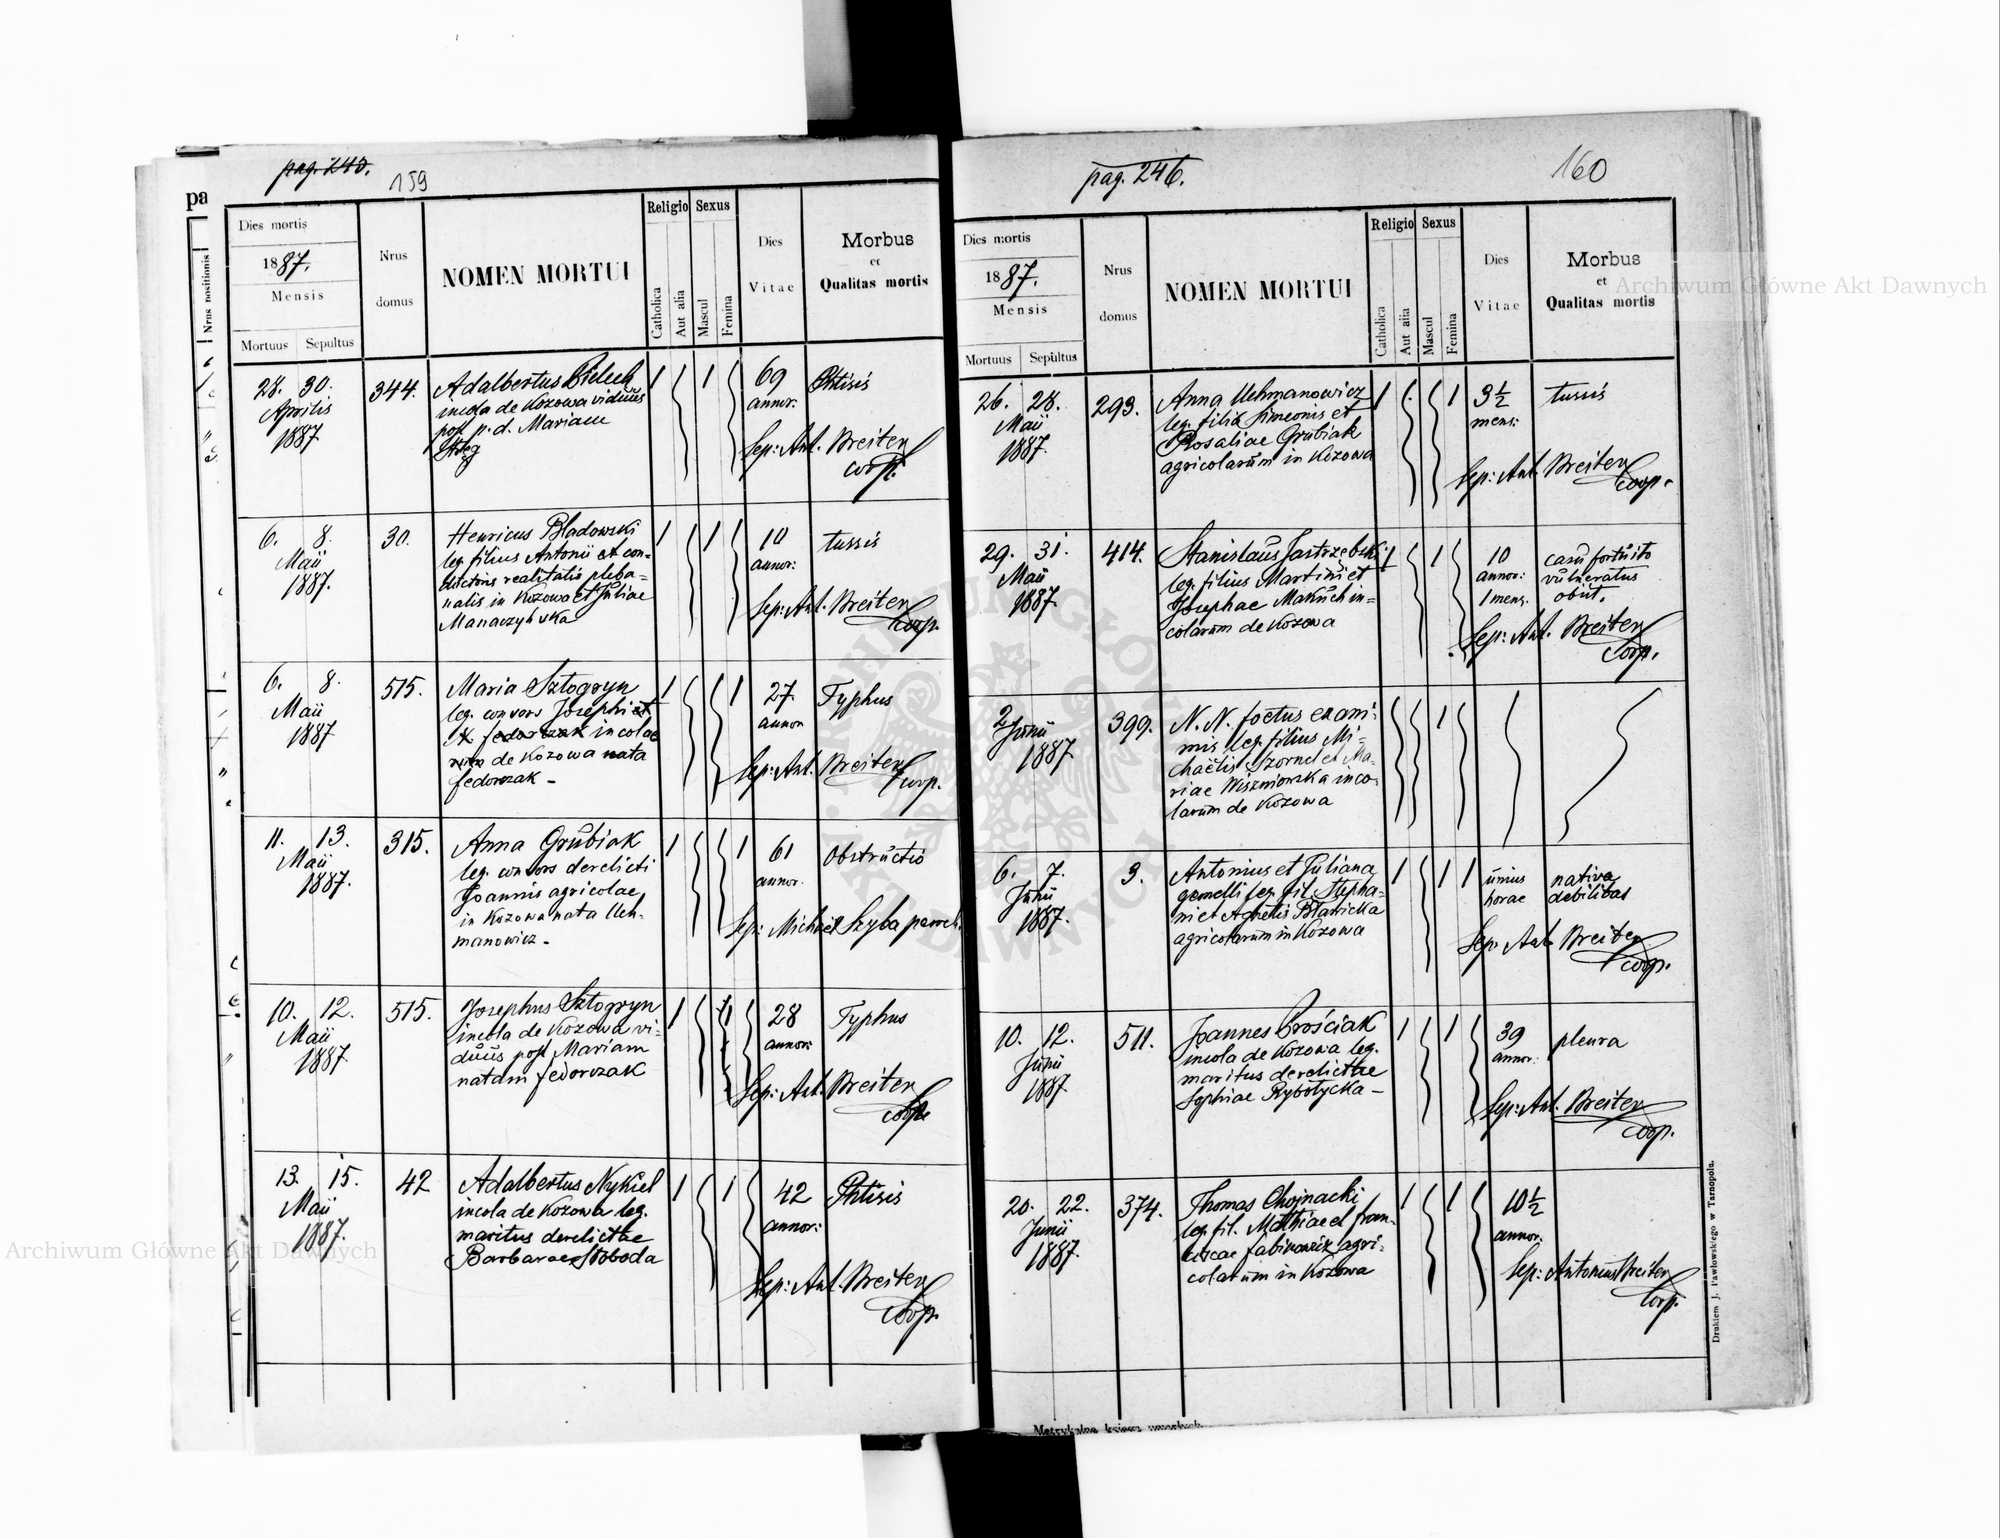 pag. 245.
159
pa
Nrus positionis
Dies mortis
1887.
Mensis
Mortuus Sepultus
Nrus domus
NOMEN MORTUI
Religio
Catholica
Aut alia
Sexus
Mascul
Femina
Dies Vitae
Morbus
et
Qualitas mortis
28. 30. 344. Adalbertus Bieluch 1 1 69 Phtisis
Aprilis incola de Kozowa viduus annor:
1887 post p. d. Mariam
Sep: Ant. Breiter
coop.
6. 8. 30. Henricus Bladowski 1 1 10 tussis
Maii leg. filius Antonii et con- annor:
1887. ductoris realitatis pleba-
nalis in Kozowa et Juliae Sep: Ant. Breiter
Manaczyńska coop.
6. 8. 515. Maria Sztogryn 1 1 27 Typhus
Maii leg. consors Josephi et annor
1887 N. Fedorczak incolae
de Kozowa nata Sep: Ant. Breiter
Fedorczak - coop.
11. 13. 315. Anna Grubiak 1 1 61 Obstructio
Maii leg. consors derelicti annor.
1887. Joannis agricolae
in Kozowa nata Uch- Sep: Michael Szyba paroch.
manowicz -
10. 12. 515. Josephus Sztogryn 1 1 28 Typhus
Maii incola de Kozowa vi- annor:
1887. duus post Mariam
natam Fedorczak Sep: Ant. Breiter
coop.
13. 15. 42 Adalbertus Nykiel 1 1 42 Phtisis
Maii incola de Kozowa leg. annor:
1887. maritus derelictae
Barbarae Słoboda Sep: Ant. Breiter
coop.
pag. 246.
160
Dies mortis
1887.
Mensis
Mortuus Sepultus
Nrus domus
NOMEN MORTUI
Religio
Catholica
Aut alia
Sexus
Mascul
Femina
Dies Vitae
Morbus
et
Qualitas mortis
26. 28. 293. Anna Uchmanowicz 1 1 3½ tussis
Maii leg. filia Simeonis et mens:
1887. Rosaliae Grubiak
agricolarum in Kozowa Sep: Ant. Breiter
coop.
29. 31. 414. Stanislaus Jastrzębski 1 1 10 casu fortuito
Maii leg. filius Martini et annor: vulneratus
1887. Josephae Makuch in- 1 mens. obiit.
colarum de Kozowa Sep: Ant. Breiter
Coop.
2 399. N. N. foetus exani- 1
Junii mis leg. filius Mi-
1887. chaëlis Szornel et Ma-
riae Wiszniowska inco-
larum de Kozowa
6. 7. 3. Antonius et Juliana 1 1 1 unius nativa
Junii gemelli leg. fil. Stepha- horae debilitas
1887. ni et Agnetis Bławicka
agricolarum in Kozowa Sep: Ant. Breiter
coop.
10. 12. 511. Joannes Prościak 1 1 39 pleura
Junii incola de Kozowa leg. annor:
1887. maritus derelictae
Sophiae Rybotycka - Sep: Ant. Breiter
coop.
20. 22. 374. Thomas Chojnacki 1 1 10½
Junii leg. fil. Mathiae et Fran- annor.
1887. ciscae Fabinowicz agri-
colarum in Kozowa Sep: Antonius Breiter
Coop.
Drukiem J. Pawłowskiego w Tarnopolu.
Metrykalne księga umarłych
Archiwum Główne Akt Dawnych
Archiwum Główne Akt Dawnych
ARCHIWUM GŁÓWNE AKT DAWNYCH